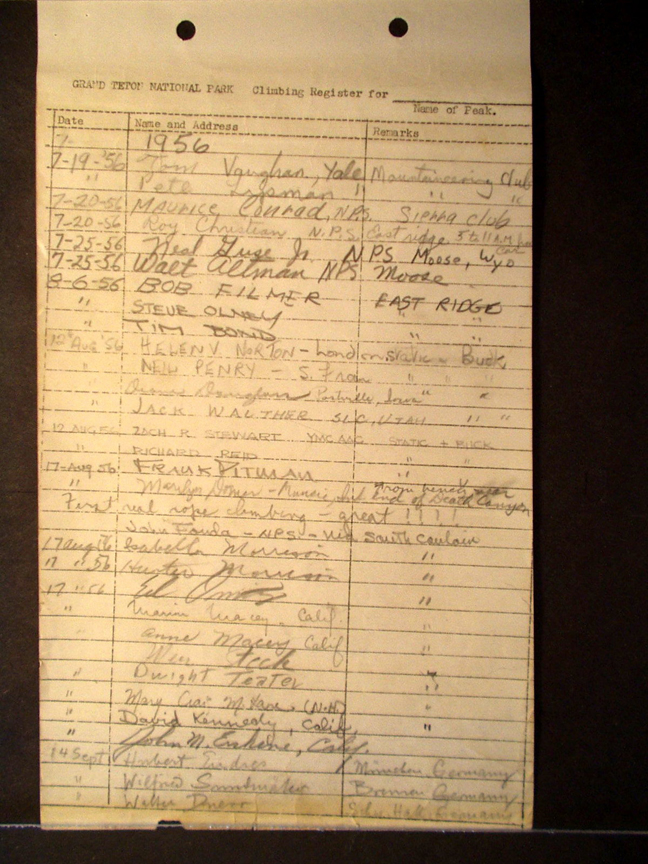 GRAND TETON NATIONAL PARK Climbing Register for
Name of Peak.
Date Name and Address Remarks
1956
7-19-'56 Tom Vaughan, Yale Mountaineering Club
" Pete " " "
7-20-56 MAURICE Conrad, NPS. Sierra club
7-20-56 Roy Christian N.P.S. East ridge 5 to 11 A.M.
7-25-56 Neal Guse Jr. NPS Moose, Wyo
7-25-56 Walt Allman NPS Moose
8-6-56 BOB FILMER EAST RIDGE
" STEVE OLNEY " "
" TIM BOND " "
12th Aug '56 HELEN V NORTON - London Static - Buck
" NEIL PENRY - S. Fran " " "
" Diane "
" JACK WALTHER SLC, UTAH " "
12 AUG 56 ZACH R. STEWART YMC AAC STATIC + BUCK
" RICHARD REID "
17-Aug 56 FRANK PITMAN
Marilyn - Muncie, End of Death Canyon
First real rope climbing - great !!!!
John Fonda - NPS - via South Couloir
17 Aug 56 Isabella Morrison "
17 " 56 Morrison "
17 " 56 Ed "
" Macey - Calif. "
" Anne Macey Calif "
Steck
Dwight Teater "
" Mary (N.H.)
" David Kennedy, Calif. "
" John M. Erskine, Calif.
14 Sept Herbert Germany
" Wilfried Bremen Germany
" Walter Germany